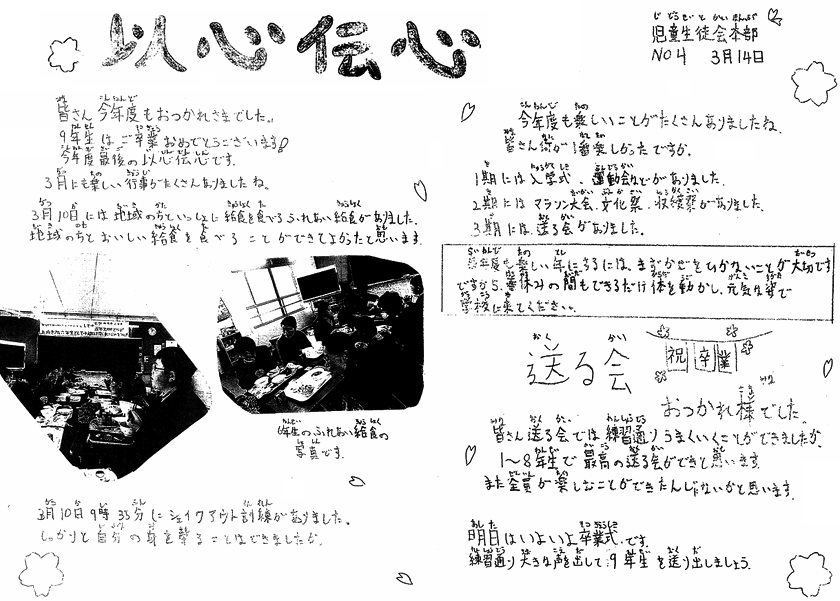 以心伝心
児童生徒会本部
NO4 3月14日
皆さん今年度もおつかれさまでした。
9年生はご卒業おめでとうございます!
今年度最後の以心伝心です。
3月にも楽しい行事がたくさんありましたね。
3月10日には地域の方といっしょに給食を食べるふれあい給食がありました。
地域の方とおいしい給食を食べることができてよかったと思います。
6年生のふれあい給食の
写真です。
3月10日9時35分にシェイクアウト訓練がありました。
しっかりと自分の身を守ることはできましたか。
今年度も楽しいことがたくさんありましたね。
皆さん何が1番楽しかったですか。
1期には入学式、運動会などがありました。
2期にはマラソン大会、文化祭、収穫祭がありました。
3期には送る会がありました。
来年度も楽しい年にするには、まずかぜをひかないことが大切です
ですから、春休みの間もできるだけ体を動かし、元気な姿で
学校に来てください。
送る会
祝 卒業
おつかれ様でした
皆さん送る会では練習通りうまくいくことができましたか。
1〜8年生で最高の送る会ができたと思います。
また全員が楽しむことができたんじゃないかと思います。
明日はいよいよ卒業式です。
練習通り大きな声を出して9年生を送り出しましょう。